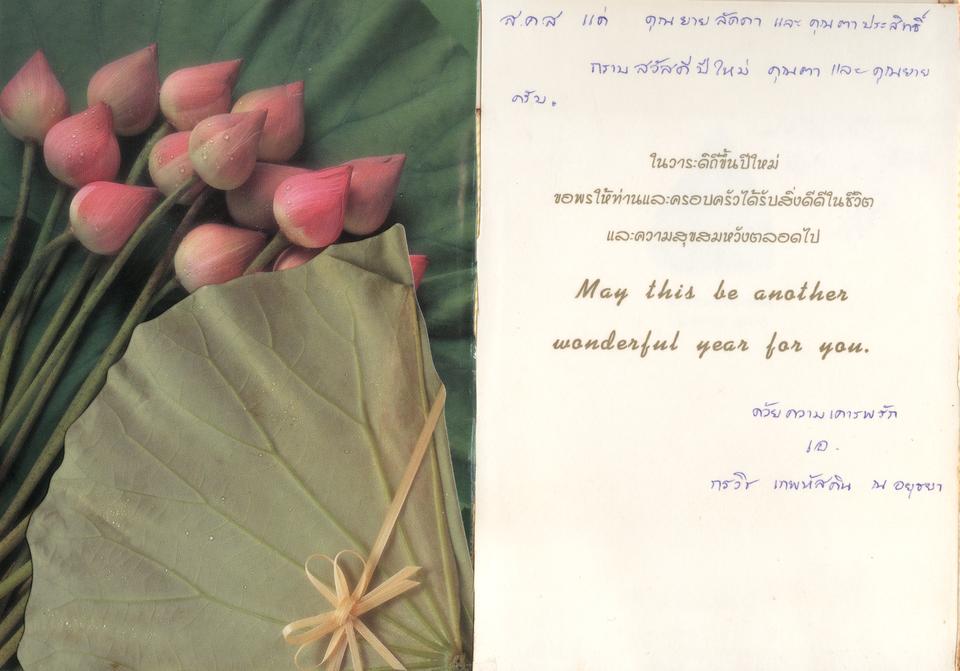 ส.ค.ส แด่ คุณยายลัดดา และคุณตาประสิทธิ์
กราบสวัสดีปีใหม่ คุณตา และคุณยาย
ครับ.
ในวาระดิถีขึ้นปีใหม่
ขอพรให้ท่านและครอบครัวได้รับสิ่งดีดีในชีวิต
และความสุขสมหวังตลอดไป
May this be another
wonderful year for you.
ด้วยความเคารพรัก
เอ.
กรวิช เทพหัสดิน ณ อยุธยา